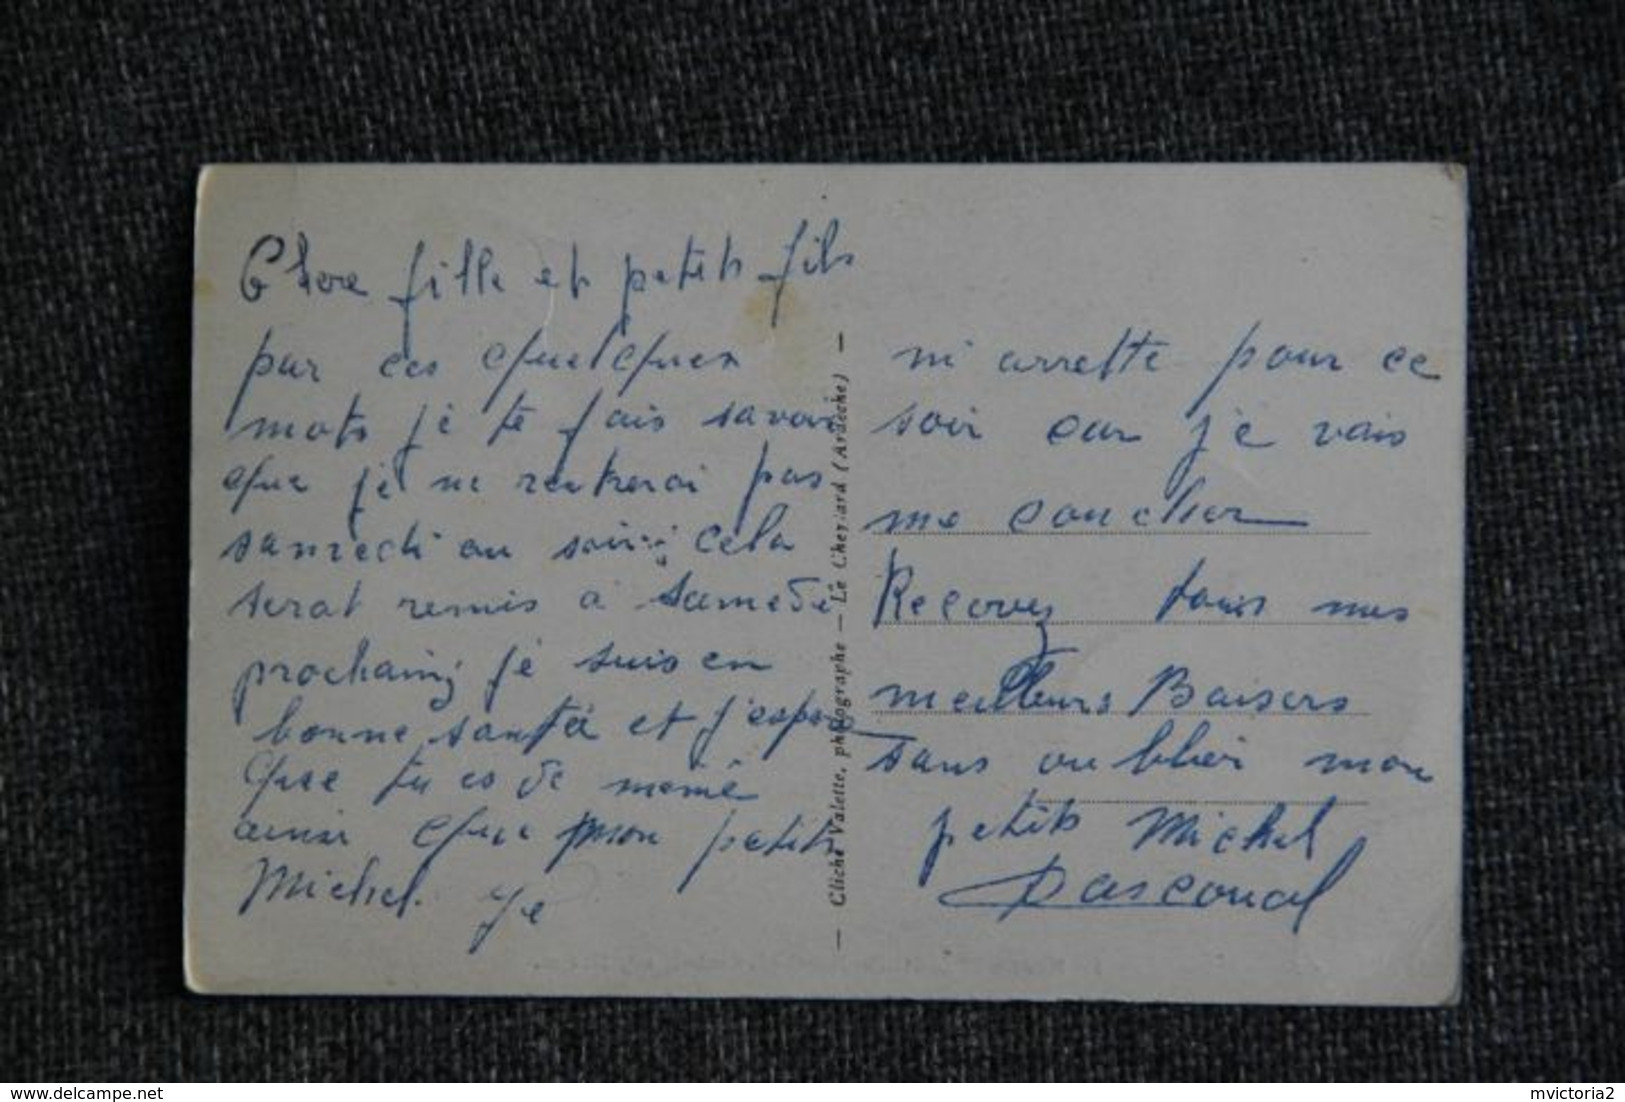 Chere fille et petits fils
par ces quelques
mots je te fais savoir
que je ne rentrerai pas
samedi au soir; cela
serat remis à samedi
prochain; je suis en
bonne santé et j'espere
que tu es de même
ainsi que mon petits
Michel. Je
— Cliché Valette, photographe — Le Cheylard (Ardèche) —
m'arrette pour ce
soir car je vais
me coucher
Recevez tous mes
meilleurs Baisers
sans oublier mon
petits Michel
Pascoual
delcampe.net
mvictoria2